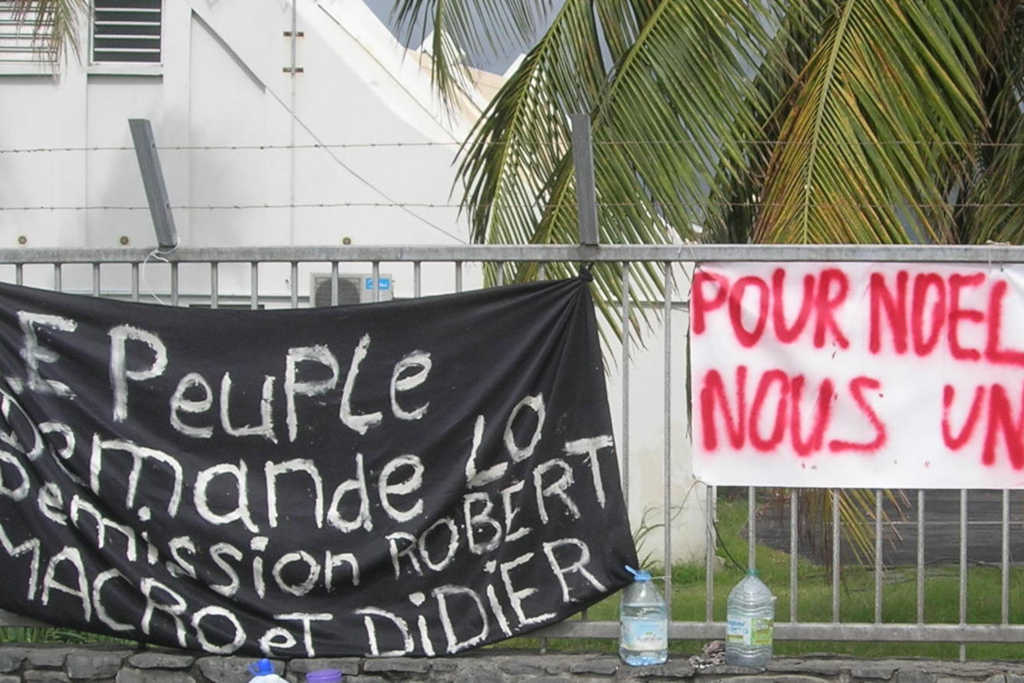 E PeupLe
Demande LO
Demission ROBERT
MACRO et DiDiER
POUR NOEL
NOUS UN